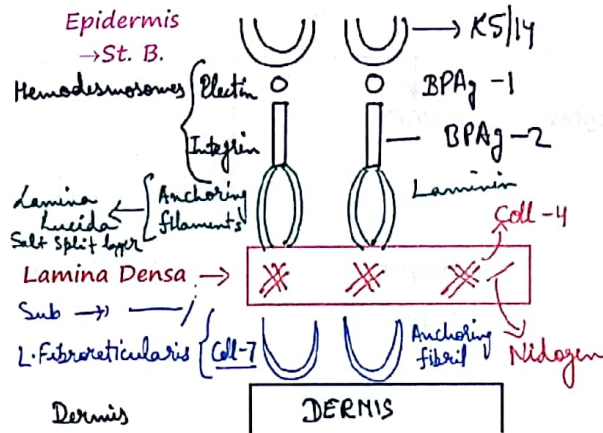 Epidermis
→ St. B.
K5/14
Hemodesmosomes
Plectin
BPAg-1
Integrin
BPAg-2
Lamina
Lucida
Salt Split layer
Anchoring
filaments
Laminin
Coll-4
Lamina Densa →
Sub →
L. Fibroreticularis
Coll-7
Anchoring
fibril
Nidogen
Dermis
DERMIS